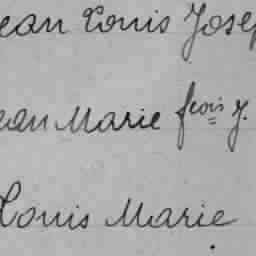 ean Louis Josep
ean Marie fçois J.
Louis Marie